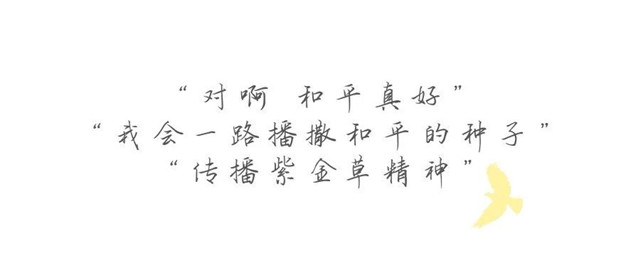 “对啊 和平真好”
“我会一路播撒和平的种子”
“传播紫金草精神”